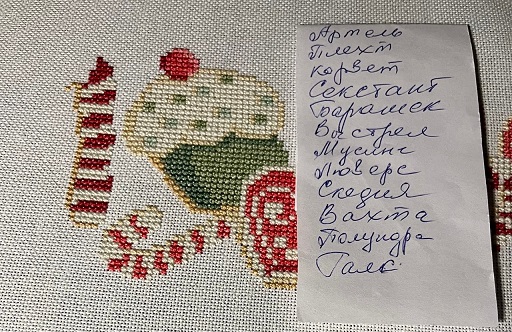 Артель
Плехт
Корвет
Секстант
Барашек
Выстрел
Мусинг
Люверс
Скедия
Вахта
Полундра
Галс.